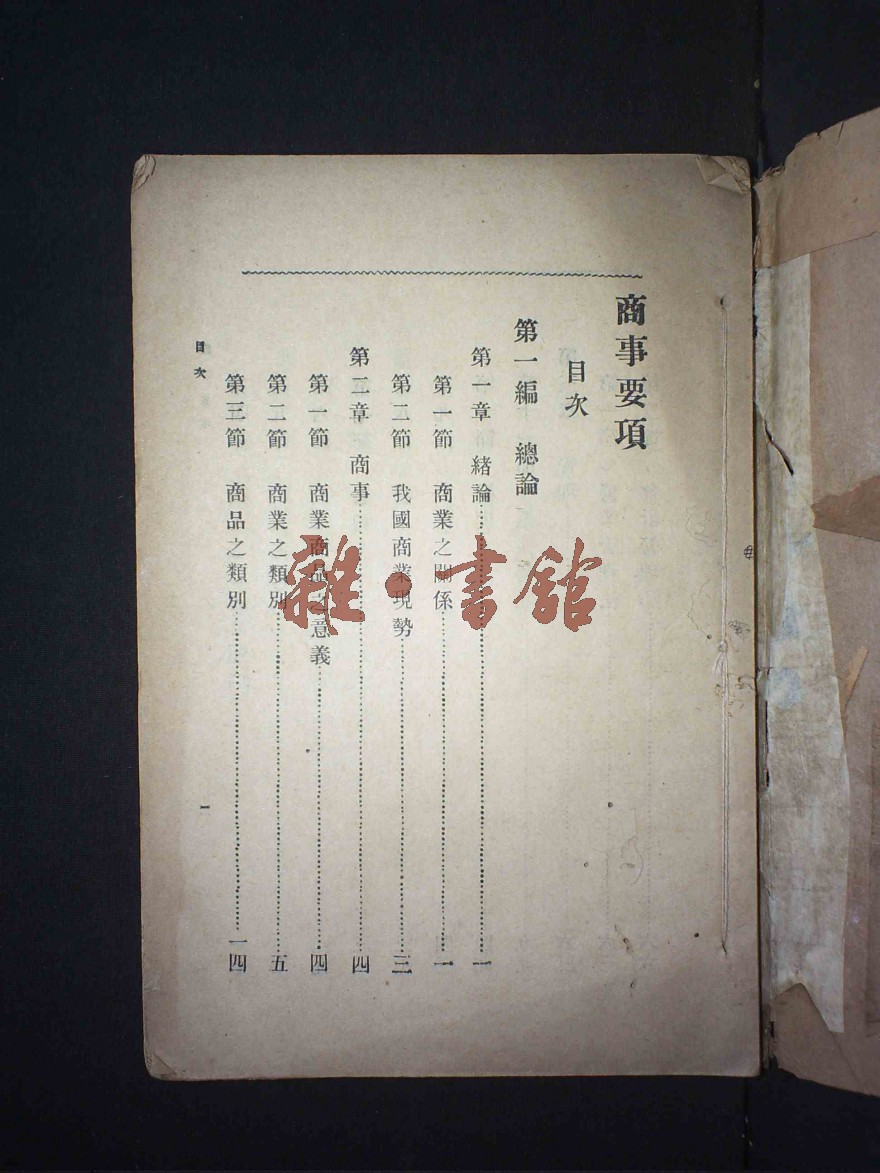 商事要項
目次
第一編 總論
第一章 緒論……一
第一節 商業之關係……一
第二節 我國商業現勢……三
第二章 商事……四
第一節 商業商品之意義……四
第二節 商業之類別……五
第三節 商品之類別……一四
目次
一
雜·書館